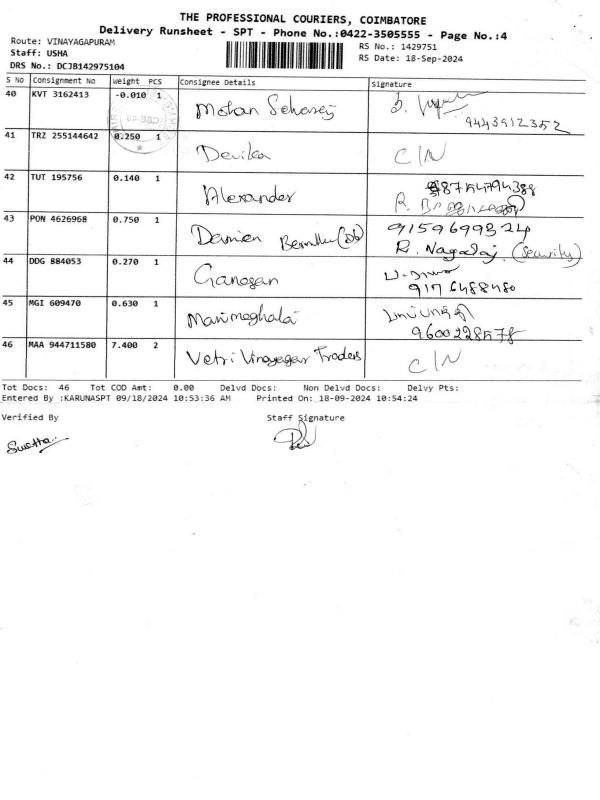 THE PROFESSIONAL COURIERS, COIMBATORE
Delivery Runsheet - SPT - Phone No.:0422-3505555 - Page No.:4
Route: VINAYAGAPURAM
Staff: USHA
DRS No.: DCJB142975104
RS No.: 1429751
RS Date: 18-Sep-2024
S No Consignment No Weight PCS Consignee Details Signature
40 KVT 3162413 -0.010 1 Mohan Sehasej
9443912352
41 TRZ 255144642 0.250 1 Devika C/N
42 TUT 195756 0.140 1 Alexander 8754794388
R.
43 PON 4626968 0.750 1 Damien 9159699324
R. Nagaraj (Security)
44 DDG 884053 0.270 1 Ganesan
9176488480
45 MGI 609470 0.630 1 Manimeghalai
9600228578
46 MAA 944711580 7.400 2 Vetri Vinayagar Traders C/N
Tot Docs: 46 Tot COD Amt: 0.00 Delvd Docs: Non Delvd Docs: Delvy Pts:
Entered By :KARUNASPT 09/18/2024 10:53:36 AM Printed On: 18-09-2024 10:54:24
Verified By Staff Signature
Swetha